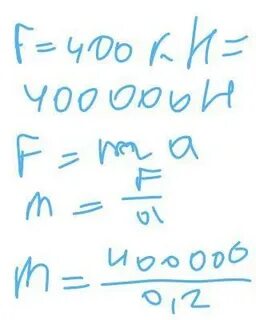 F = 400 кН =
400000Н
F = m a
m = F/a
m = 400000/0,2